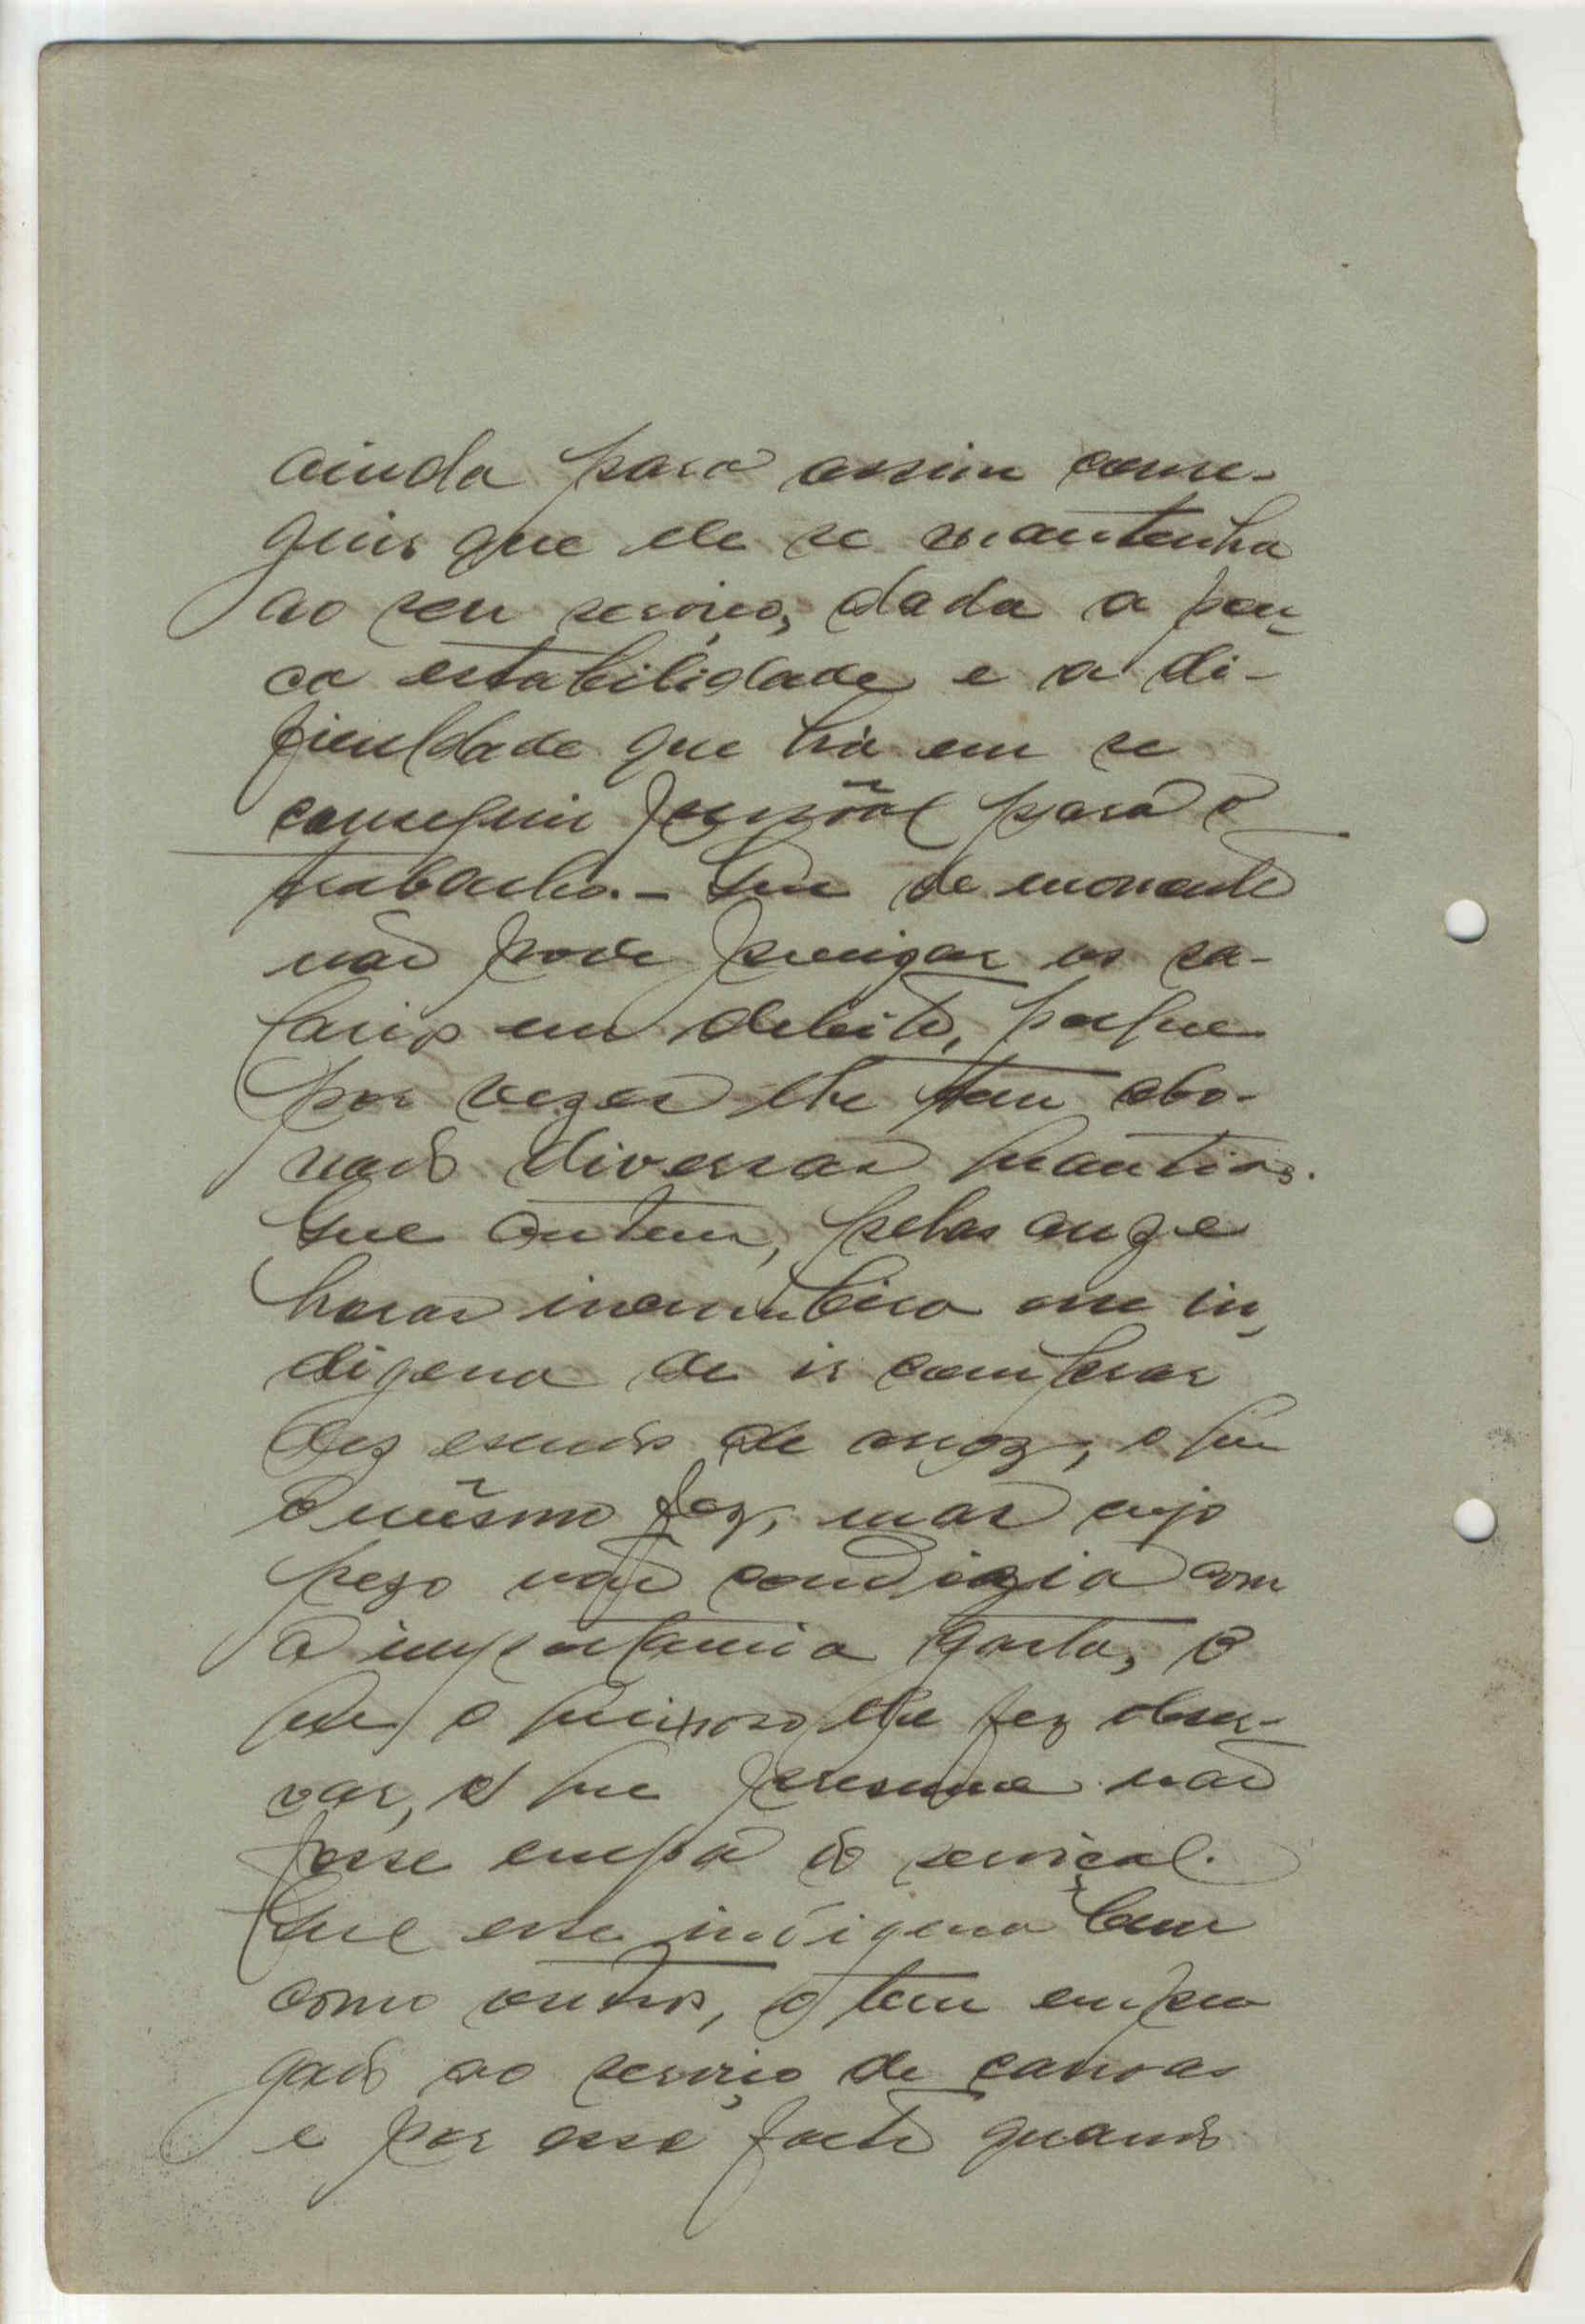 ainda para assim conse-
guir que ele se mantenha
ao seu serviço, dada a pou-
ca estabilidade e a di-
ficuldade que há em se
conseguir pessoal para o
trabalho. - Que de momento
não pode precisar os sa-
larios em debito, porque
por vezes lhe tem abo-
nado diversas quantias.
Que ontem, pelas onze
horas incumbira esse in-
digena de ir comprar
dez escudos de, o que
o mesmo fez, mas cujo
pezo não condizia com
a importancia gasta, o
que o queixoso lhe fez obser-
var, e que presume não
fosse culpa do serviçal.
Que esse indigena bem
como outros, o tem empre
gado ao serviço de canoas
e por esse facto quando